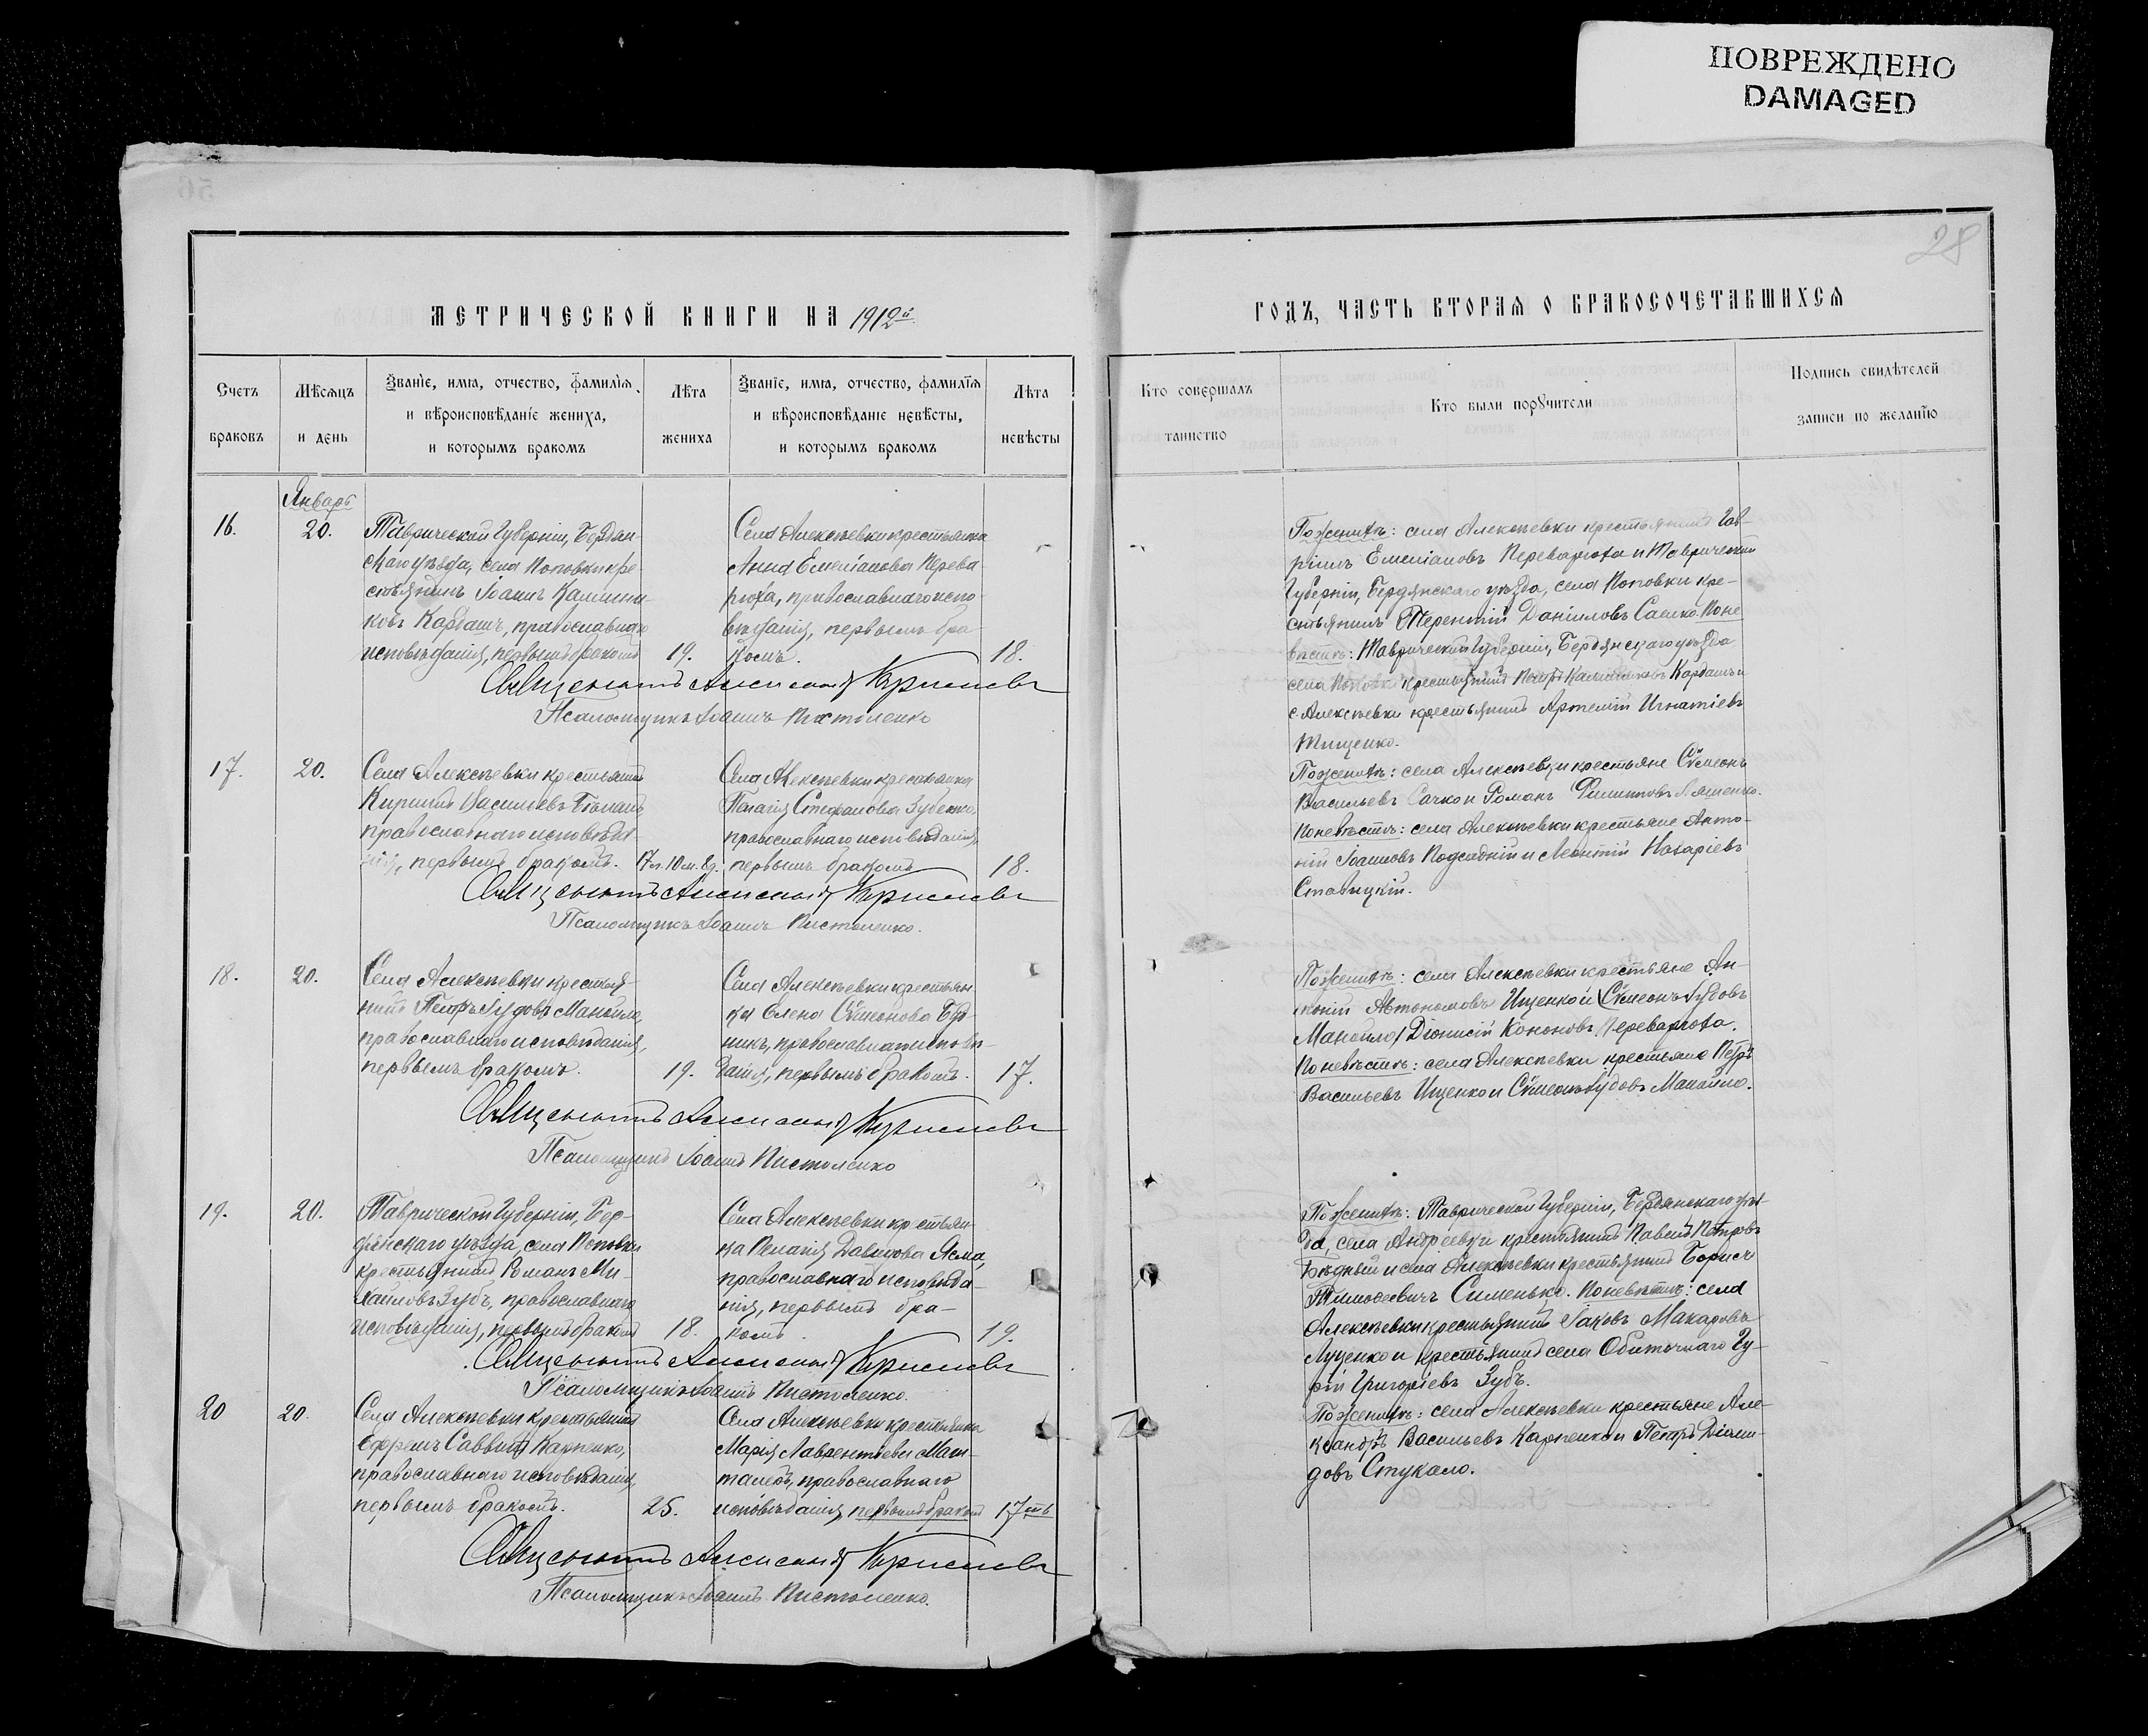 ПОВРЕЖДЕНО
DAMAGED
28
МЕТРИЧЕСКОЙ КНИГИ НА 1912й
ГОДЪ, ЧАСТЬ ВТОРАЯ О БРАКОСОЧЕТАВШИХСЯ
Счетъ браковъ
Мѣсяцъ и день
Званїе, имя, отчество, фамилїя
и вѣроисповѣданїе жениха,
и которымъ бракомъ
Лѣта жениха
Званїе, имя, отчество, фамилїя
и вѣроисповѣданїе невѣсты,
и которымъ бракомъ
Лѣта невѣсты
Кто совершалъ
таинство
Кто были порꙋчители
Подпись свидѣтелей
записи по желанїю
Январь
16.
20.
Таврической Губерніи, Бердян-
скаго уѣзда, села Поповки кре-
стьянинъ Іоаннъ Каллини-
ковъ Кардашъ, православнаго
исповѣданія, первымъ бракомъ
19.
Села Алексѣевки крестьянка
Анна Емеліанова Перева-
рюха, православнаго испо-
вѣданія, первымъ бра-
комъ.
18.
Священникъ
Псаломщикъ Іоаннъ Пистоленко
По женихѣ: села Алексѣевки крестьянинъ Гав-
ріилъ Емеліановъ Переварюха и Таврической
Губерніи, Бердянскаго уѣзда, села Поповки кре-
стьянинъ Терентій Даніиловъ Саенко. По не
вѣстѣ: Таврической Губерніи, Бердянскаго уѣзда
села Поповки крестьянинъ Петръ Каллиниковъ Кардашъ и
с. Алексѣевки крестьянинъ Артемій Игнатіевъ
Тищенко.
17.
20.
Села Алексѣевки крестьянинъ
Кириллъ Васильевъ
православнаго исповѣда-
нія, первымъ бракомъ.
17 л. 10 м. 8 д.
Села Алексѣевки крестьянка
Пелагія Стефанова Губенко,
православнаго исповѣданія,
первымъ бракомъ
18.
Священникъ
Псаломщикъ Іоаннъ Пистоленко.
По женихѣ: села Алексѣевки крестьяне Сѵмеонъ
Васильевъ Сачко и Романъ Филипповъ Ляшенко.
По невѣстѣ: села Алексѣевки крестьяне Анто-
ній Іоанновъ Подсадній и Леонтій Назаріевъ
Ставицкій.
18.
20.
Села Алексѣевки крестья-
нинъ Петръ Іудовъ Манойло,
православнаго исповѣданія,
первымъ бракомъ.
19.
Села Алексѣевки крестьян-
ка Елена Сѵмеонова Бур-
никъ, православнаго исповѣ-
данія, первымъ бракомъ.
17.
Священникъ
Псаломщикъ Іоаннъ Пистоленко
По женихѣ: села Алексѣевки крестьяне Ан-
тоній Автономовъ Ищенко и Сѵмеонъ Іудовъ
Манойло, Діонисій Кононовъ Переварюха.
По невѣстѣ: села Алексѣевки крестьяне Петръ
Васильевъ Ищенко и Сѵмеонъ Іудовъ Манойло.
19.
20.
Таврической Губерніи, Бер-
дянскаго уѣзда, села Поповки
крестьянинъ Романъ Ми-
хаиловъ Зубъ, православнаго
исповѣданія, первымъ бракомъ
18.
Села Алексѣевки крестьян-
ка Пелагія Давидова Ясма,
православнаго исповѣда-
нія, первымъ бра-
комъ.
19.
Священникъ
Псаломщикъ Іоаннъ Пистоленко.
По женихѣ: Таврической Губерніи, Бердянскаго уѣз-
да, села Андреевки крестьянинъ Павелъ Петровъ
Бѣдный и села Алексѣевки крестьянинъ Борисъ
Тимофеевичъ Сименько. По невѣстѣ: села
Алексѣевки крестьянинъ Іаковъ Макаровъ
Луценко и крестьянинъ села Обиточнаго Гу-
рій Григоріевъ Зубъ.
20
20.
Села Алексѣевки крестьянинъ
Ефремъ Саввинъ Карпенко,
православнаго исповѣданія,
первымъ бракомъ.
25.
Села Алексѣевки крестьянка
Марія Лаврентіева
православнаго
исповѣданія, первымъ бракомъ
17ть
Священникъ
Псаломщикъ Іоаннъ Пистоленко.
По женихѣ: села Алексѣевки крестьяне Але-
ксандръ Васильевъ Карпенко и Петръ
Стукало.